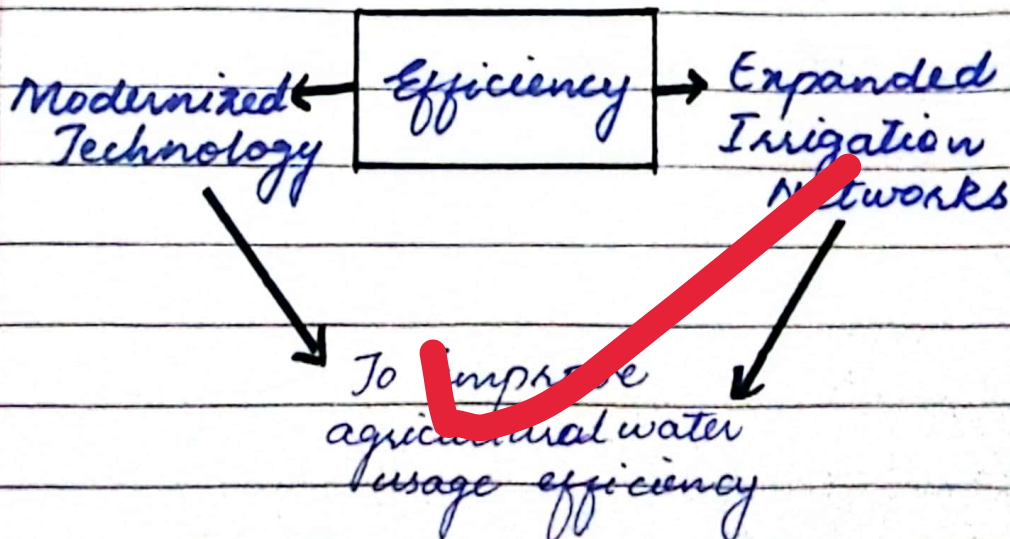 Efficiency
Modernized
Technology
Expanded
Irrigation
Networks
To improve
agricultural water
usage efficiency